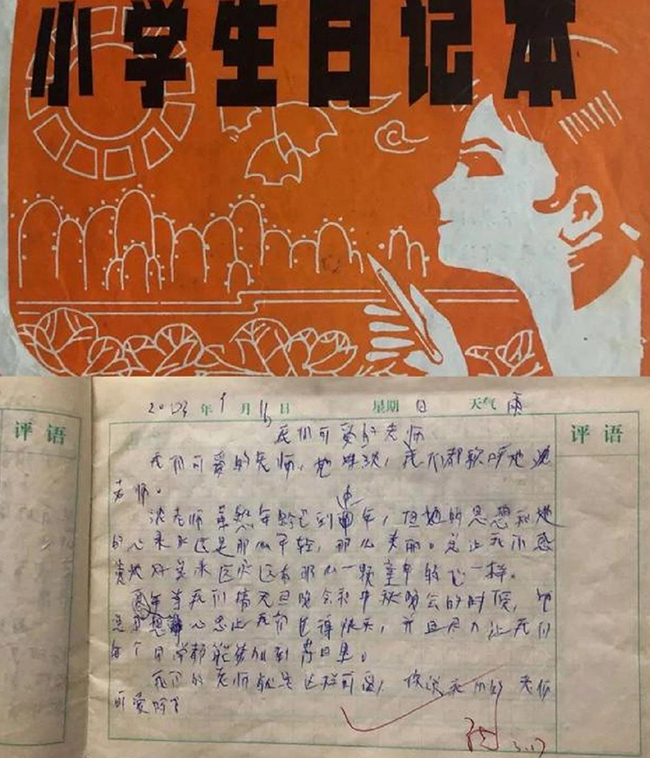 小学生日记本
评语
年 月 日 星期日 天气 雨
评语
我们可爱的老师
我们可爱的老师,她姓沈,我们都称呼她沈
老师。
沈老师虽然年龄已到中年,但她的思想和她
的心永远是那么年轻,那么美丽。总让我们感
觉她好像永远有那么一颗童年的心一样。
每年当我们搞元旦晚会和中秋晚会的时候,她
总是想办心思让我们过得快乐,并且尽力让我们
每个同学都能参加到节目里。
我们的老师就是这样可爱,你说我们的老师
可爱吗?